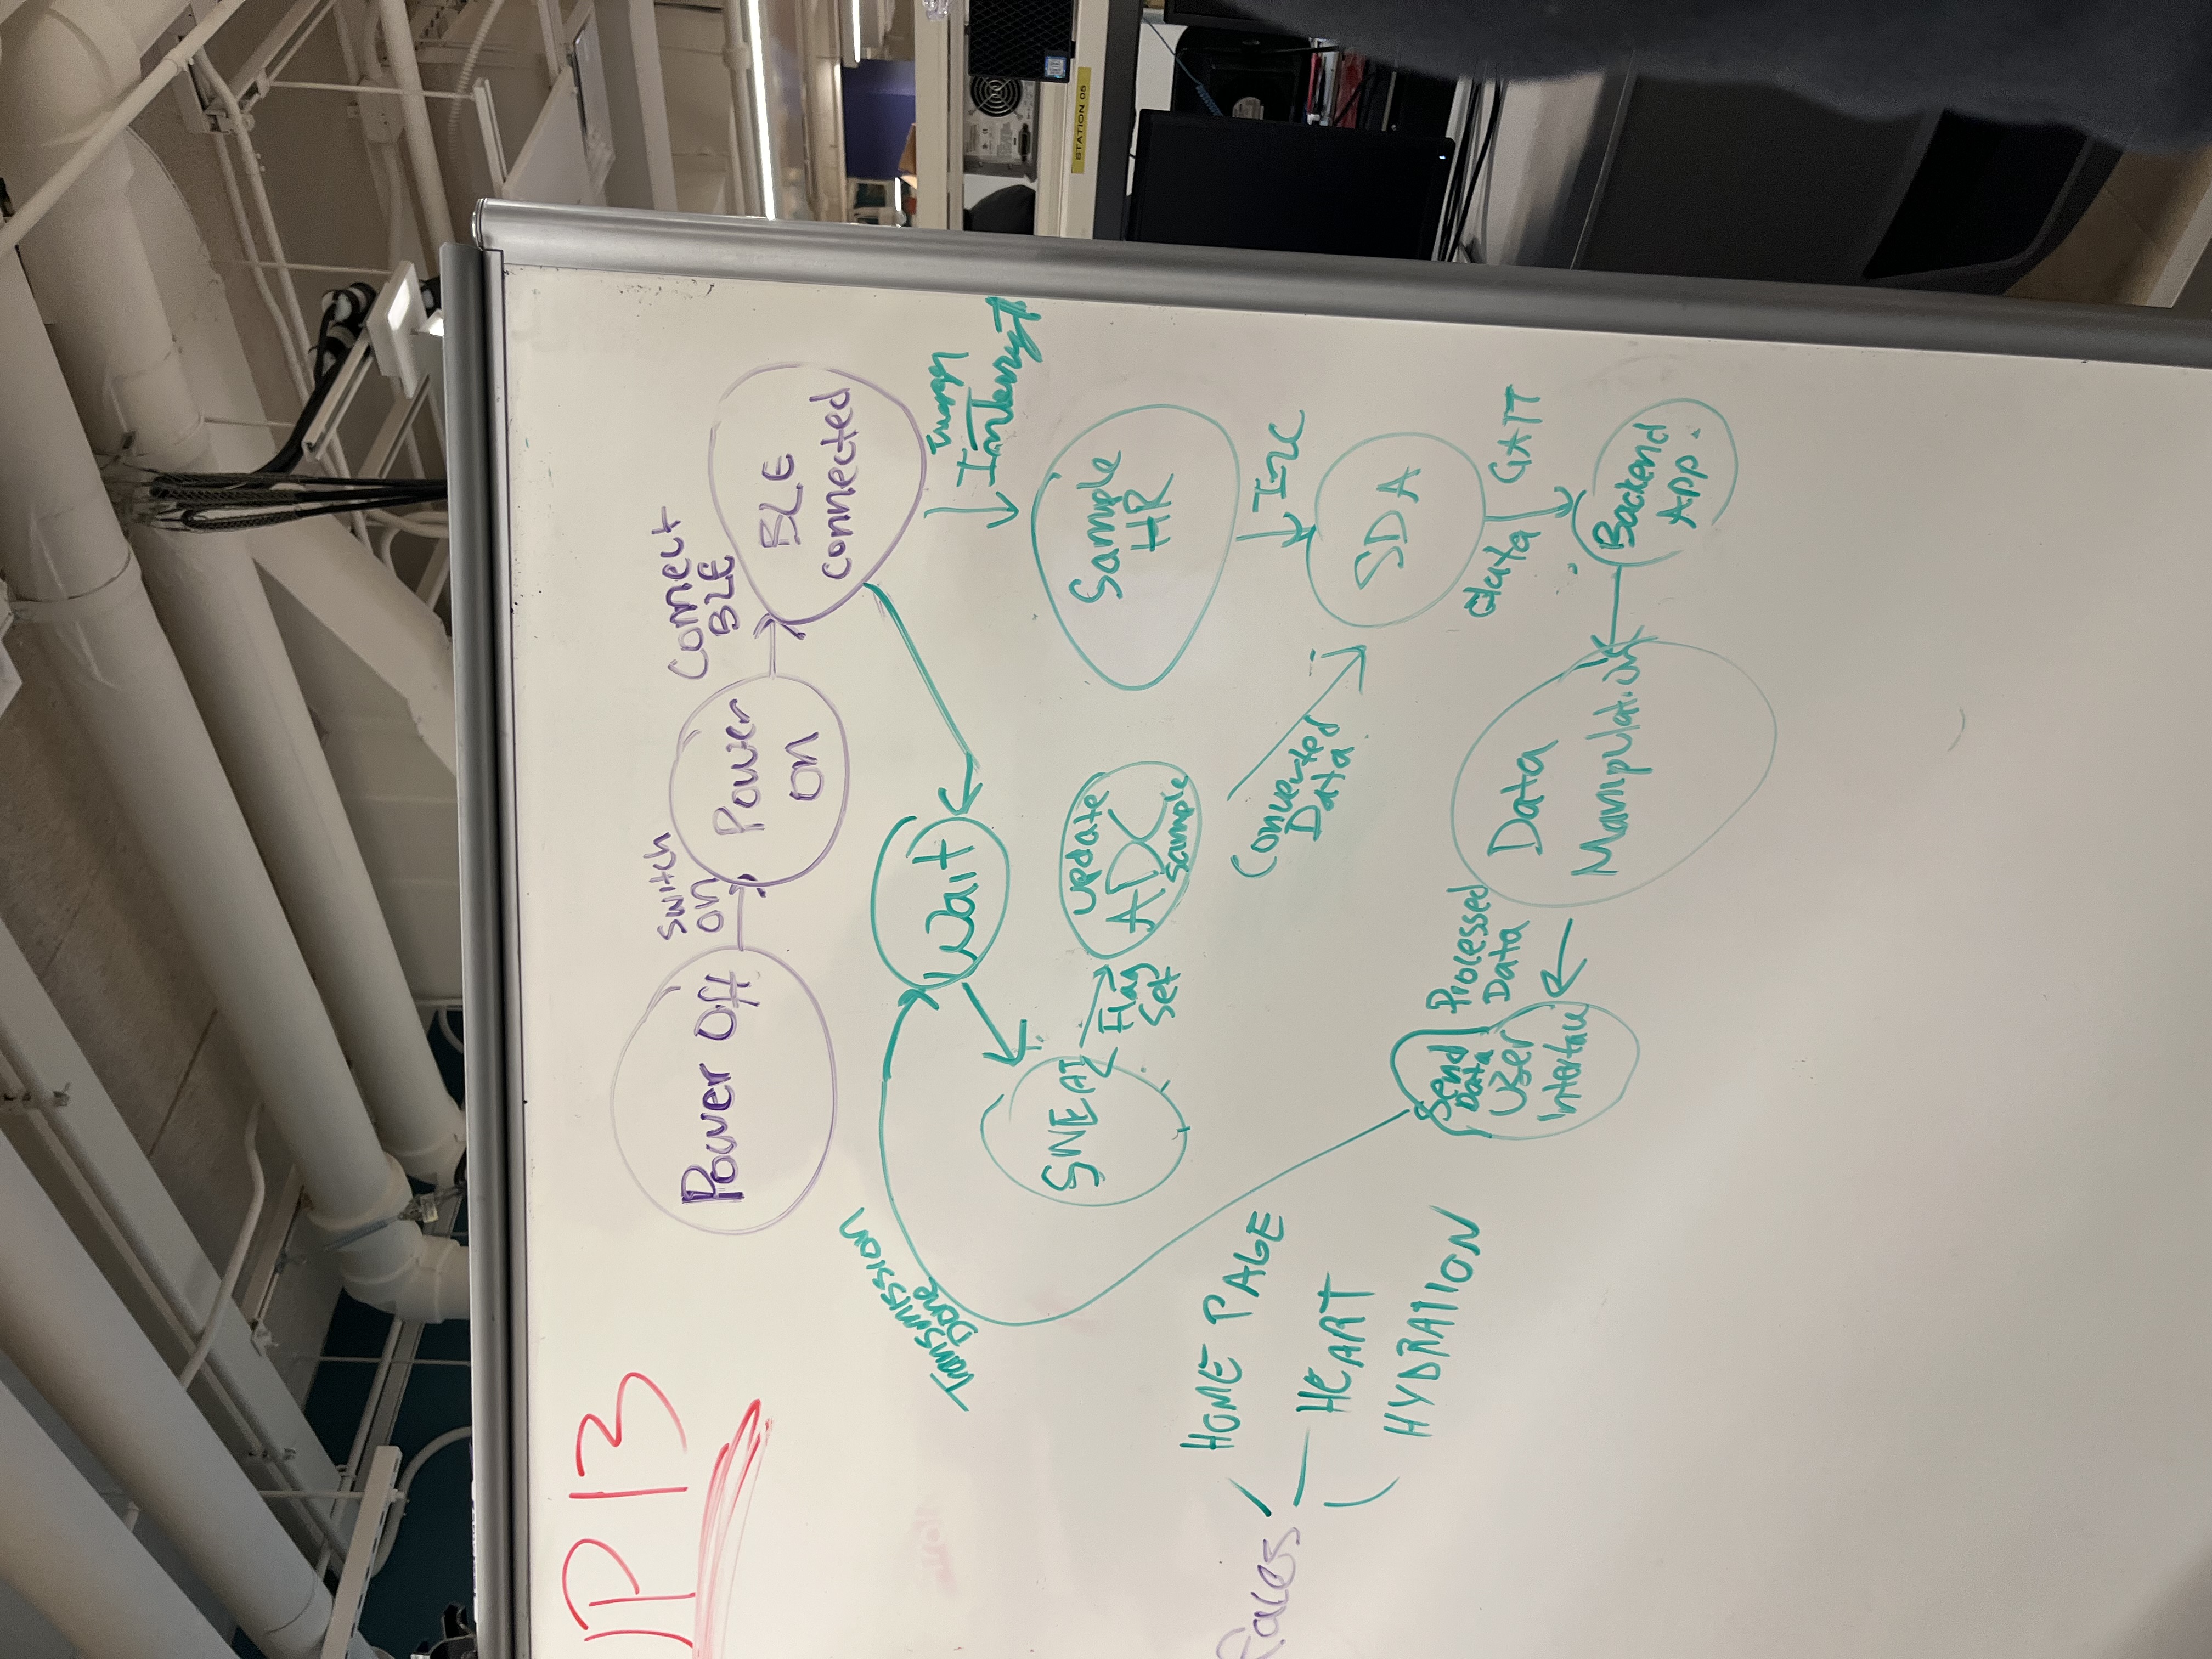 JP13
Power Off
Switch
on
Power
on
Connect
BLE
BLE
Connected
Transmission
Done
Wait
Interrupt
SWEAT
Flag
Set
Update
ADC
Sample
Sample
HR
I2C
Converted
Data
SDA
data
GATT
Backend
App.
Data
Manipulation
Processed
Data
Send
Data
User
Interface
faces
HOME PAGE
HEART
HYDRATION
STATION 05